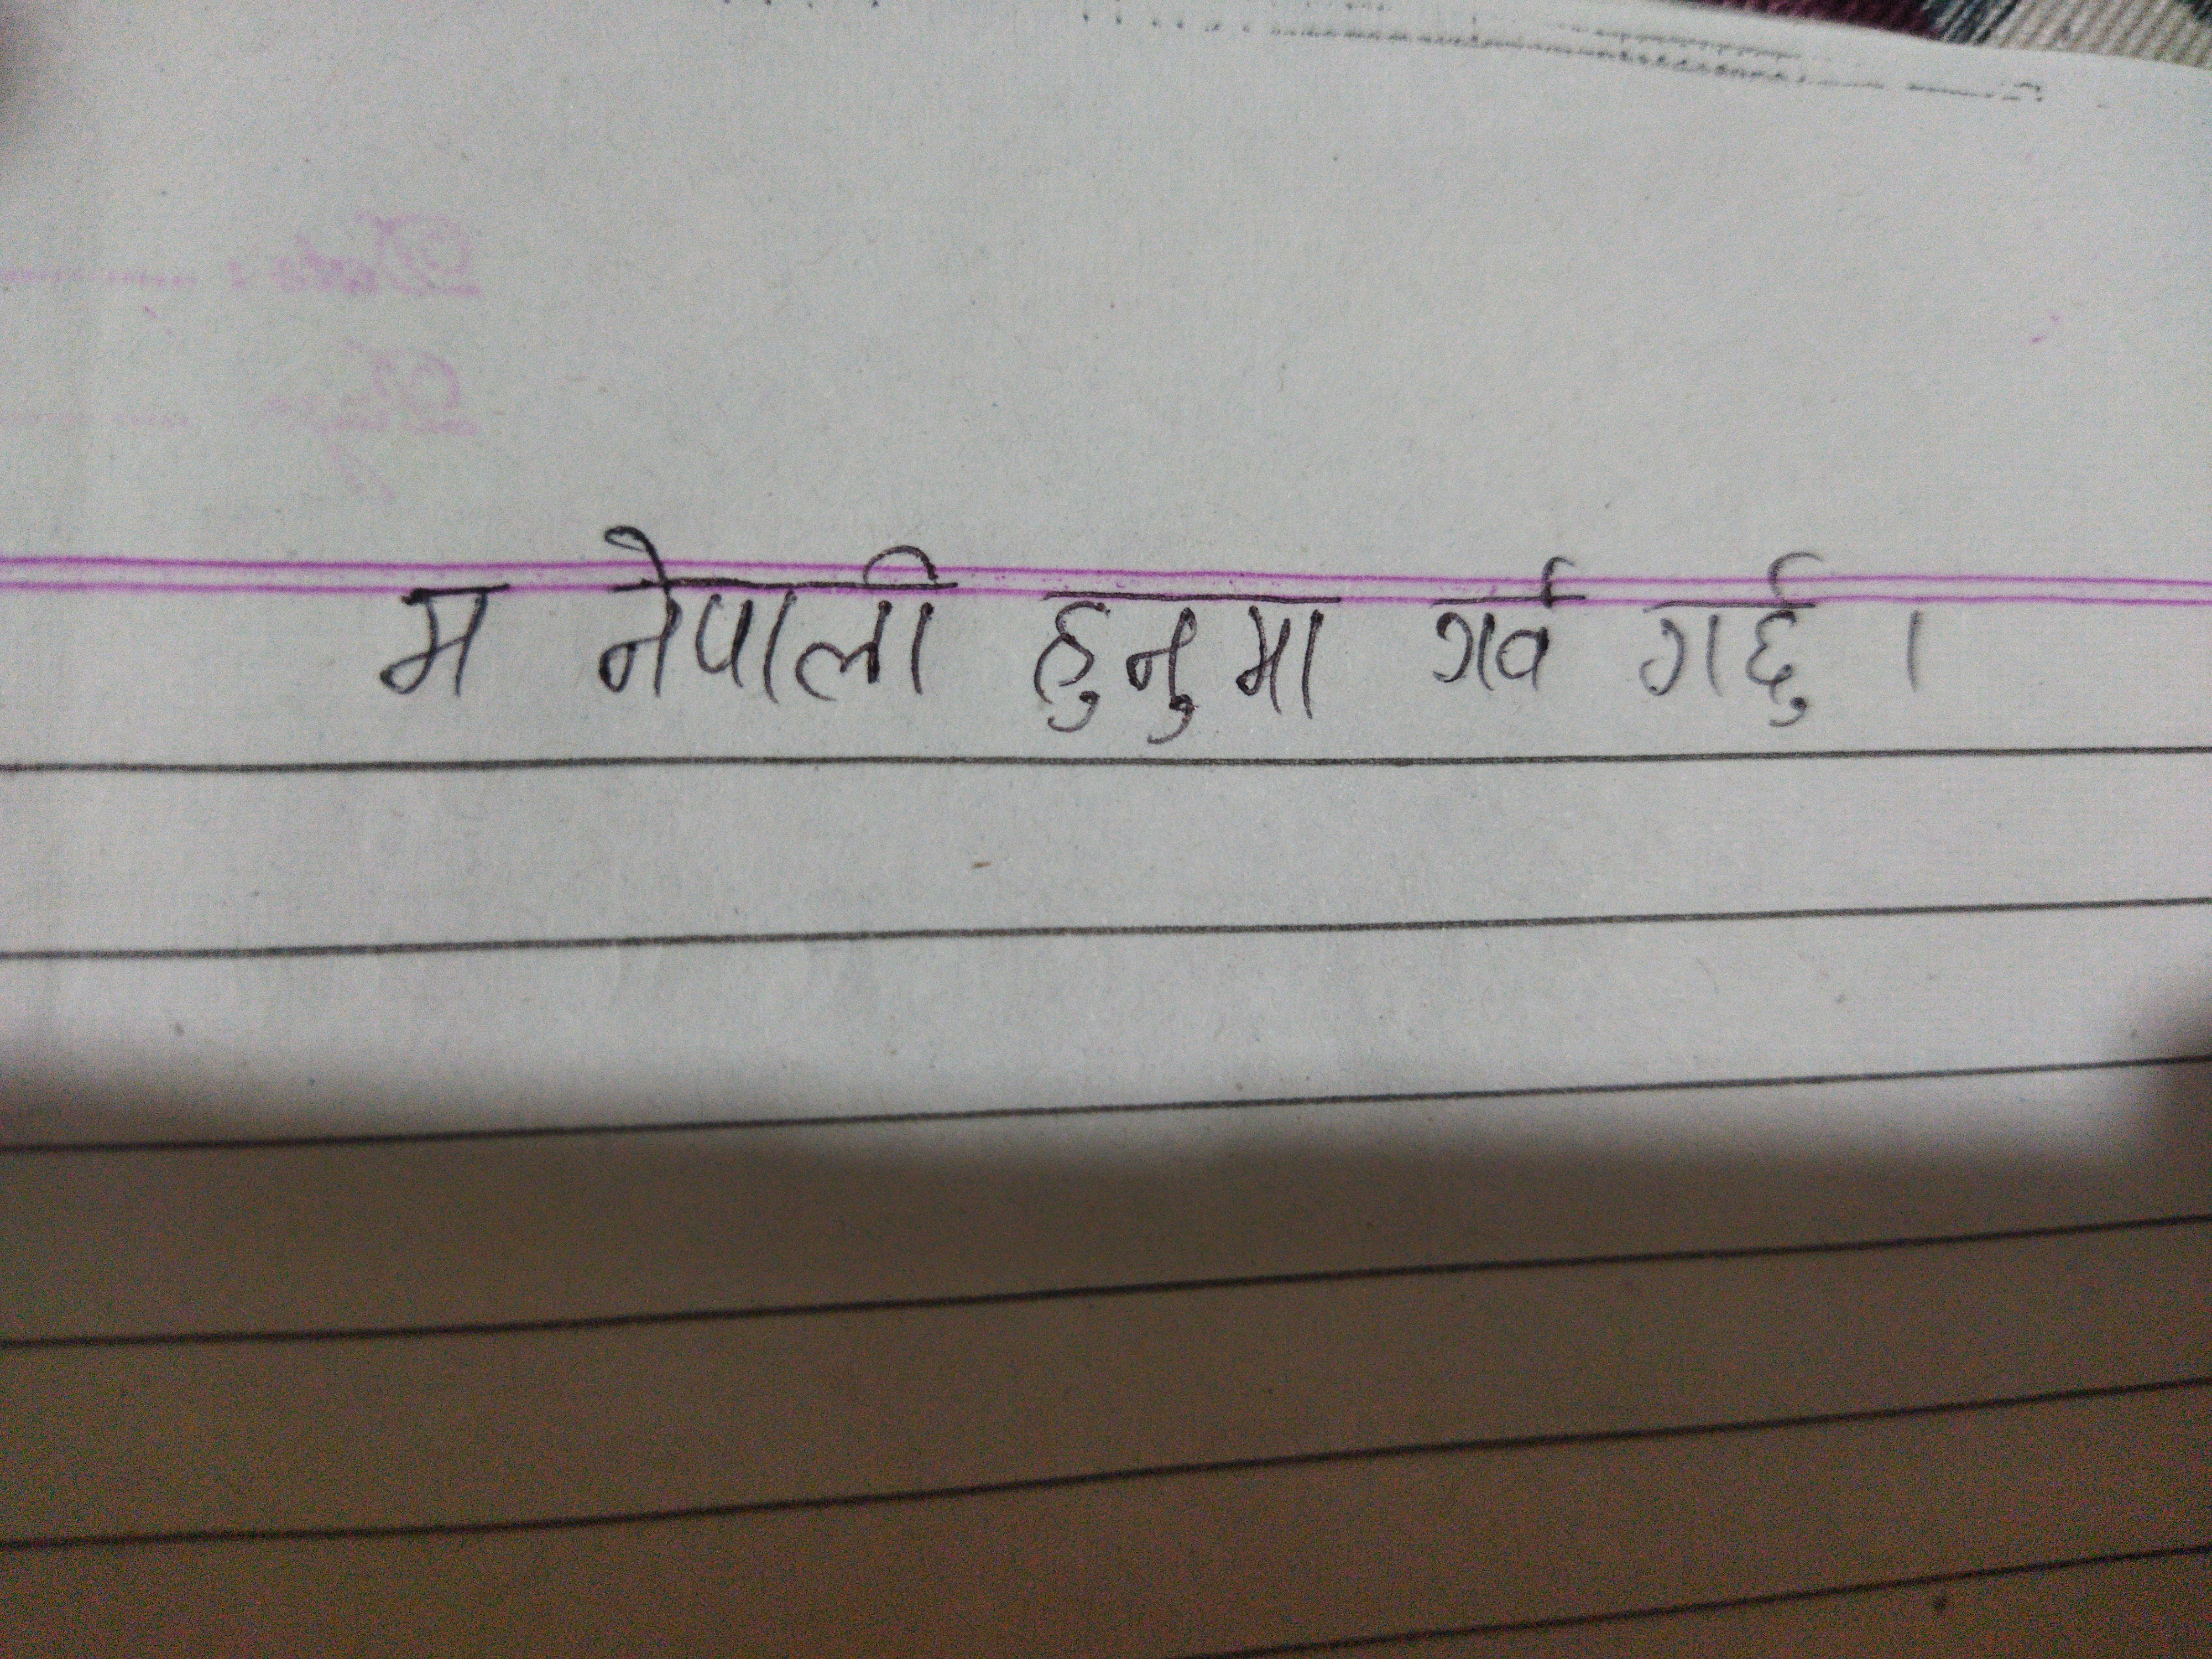 म नेपाली हुनुमा गर्व गर्छु ।